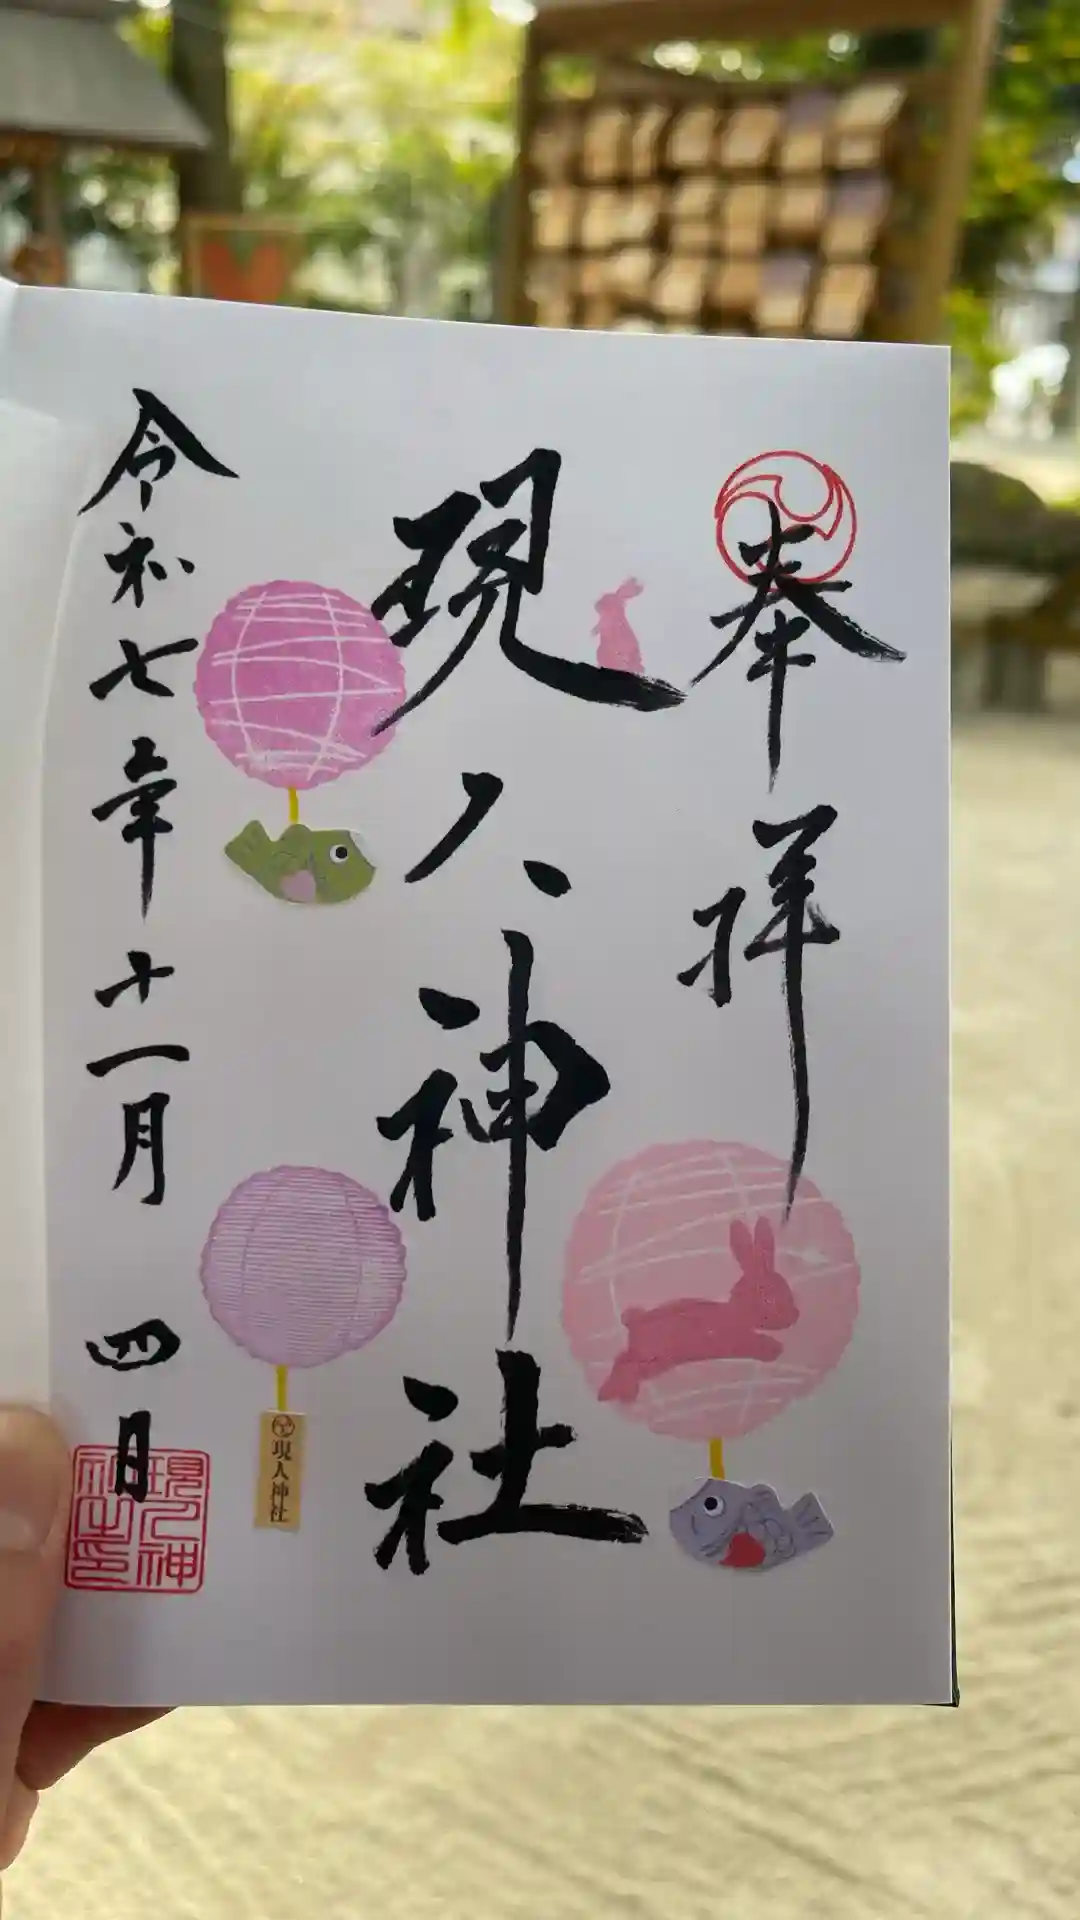 奉拝
現人神社
令和七年十一月四日
現人神社
現人神社之印